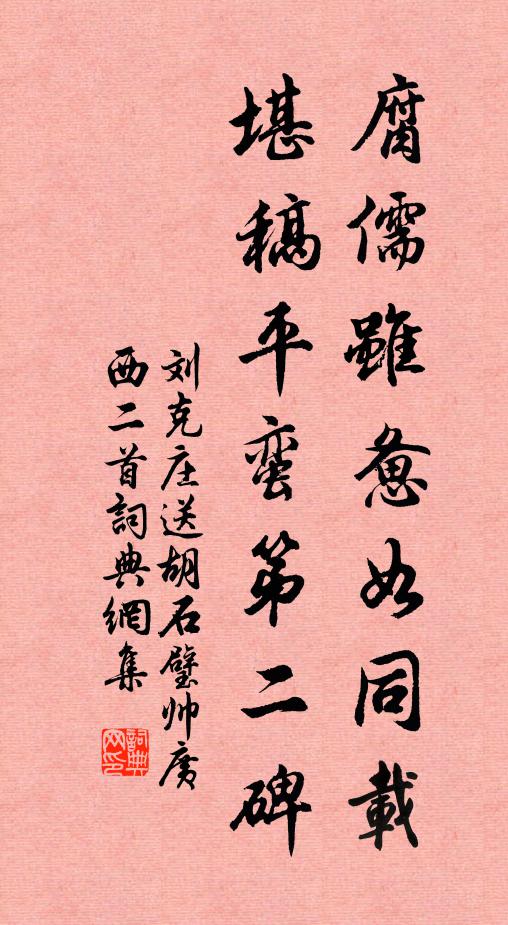 腐儒雖惫如同載
堪稿平蛮第二碑
刘克庄送胡石壁帅广
西二首詞典網集
詞典网印